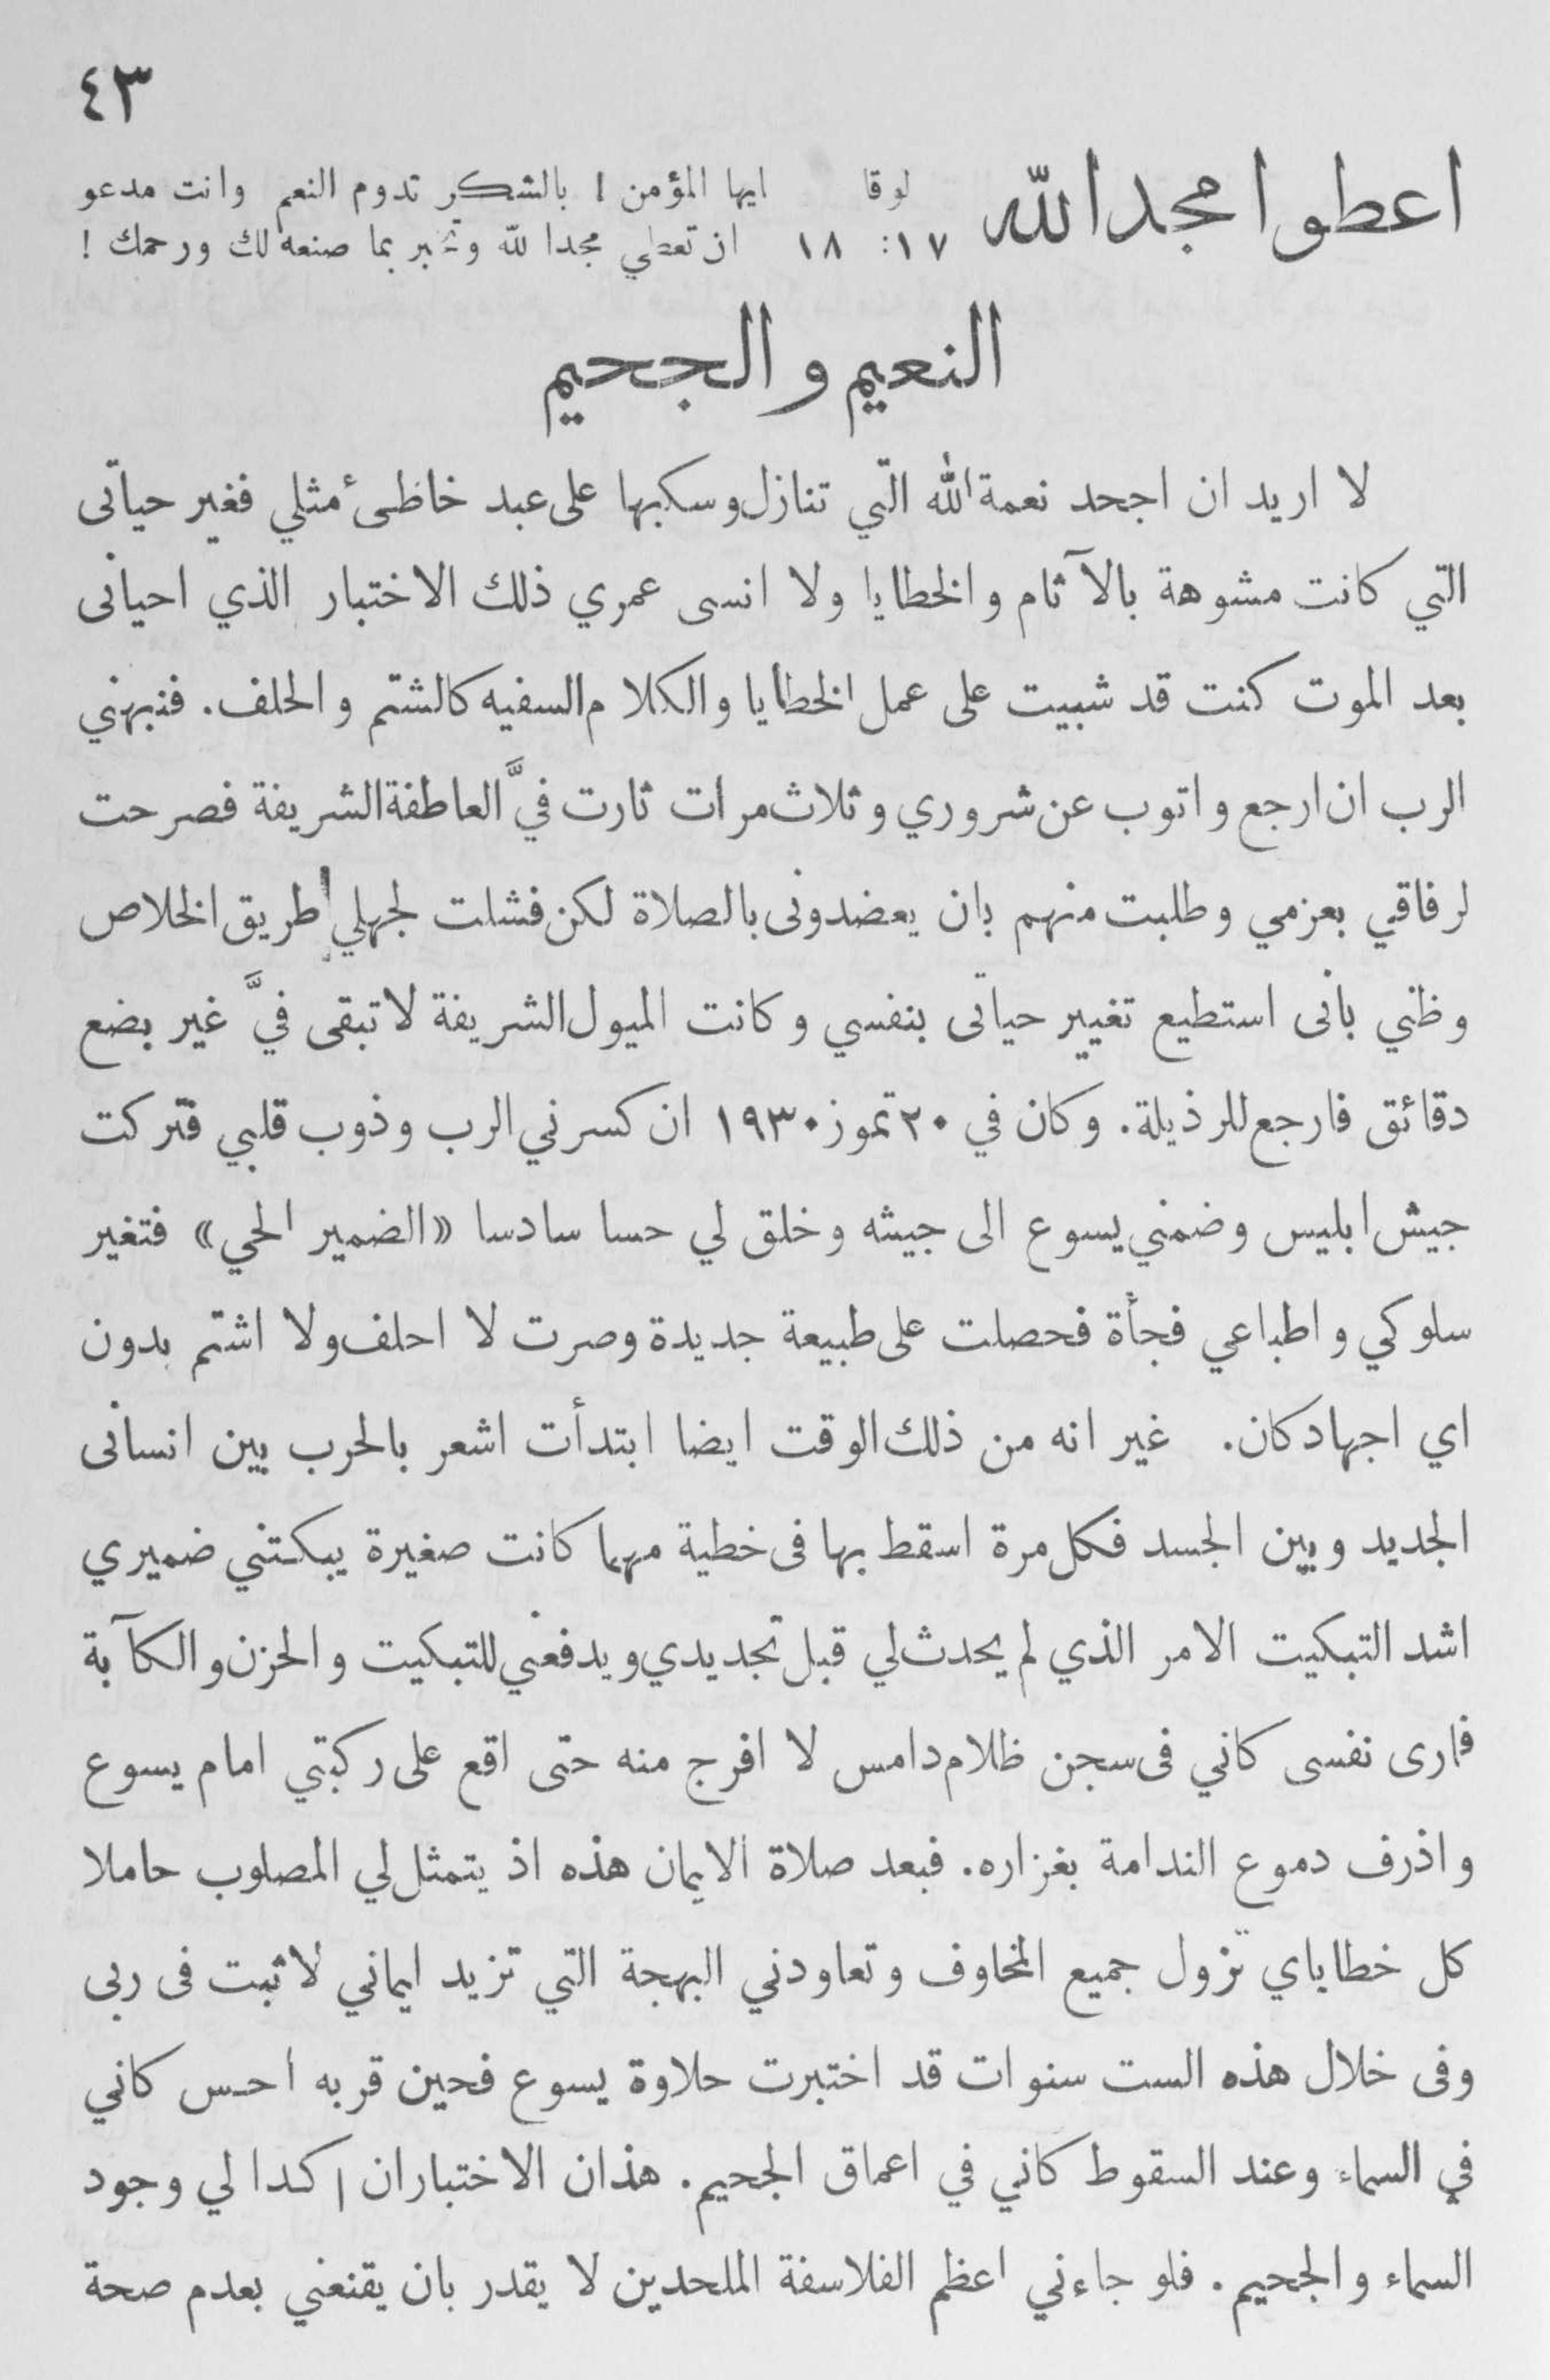 ٤٣
اعطوا مجدا لله لوقا ١٧: ١٨
ايها المؤمن ! بالشكر تدوم النعم وانت مدعو
ان تعطي مجدا لله وتخبر بما صنعه لك ورحمك !
النعيم والجحيم
لا اريد ان اجحد نعمة الله التي تنازل وسكبها على عبد خاطئ مثلي فغير حياتى
التي كانت مشوهة بالآثام والخطايا ولا انسى عمري ذلك الاختبار الذي احيانى
بعد الموت كنت قد شبيت على عمل الخطايا والكلام السفيه كالشتم والحلف. فنبهني
الرب ان ارجع واتوب عن شروري وثلاث مرات ثارت فيَّ العاطفة الشريفة فصرحت
لرفاقي بعزمي وطلبت منهم بان يعضدونى بالصلاة لكن فشلت لجهلي طريق الخلاص
وظني بانى استطيع تغيير حياتى بنفسي وكانت الميول الشريفة لا تبقى فيَّ غير بضع
دقائق فارجع للرذيلة. وكان في ٢٠ تموز ١٩٣٠ ان كسرني الرب وذوب قلبي فتركت
جيش ابليس وضمني يسوع الى جيشه وخلق لي حسا سادسا «الضمير الحي» فتغير
سلوكي واطباعي فجأة فحصلت على طبيعة جديدة وصرت لا احلف ولا اشتم بدون
اي اجهاد كان. غير انه من ذلك الوقت ايضا ابتدأت اشعر بالحرب بين انسانى
الجديد وبين الجسد فكل مرة اسقط بها فى خطية مهما كانت صغيرة يبكتني ضميري
اشد التبكيت الامر الذي لم يحدث لي قبل تجديدي ويدفعني للتبكيت والحزن والكآبة
فارى نفسى كاني فى سجن ظلام دامس لا افرج منه حتى اقع على ركبتي امام يسوع
واذرف دموع الندامة بغزاره. فبعد صلاة الايمان هذه اذ يتمثل لي المصلوب حاملا
كل خطاياي تزول جميع المخاوف وتعاودني البهجة التي تزيد ايماني لاثبت فى ربى
وفى خلال هذه الست سنوات قد اختبرت حلاوة يسوع فحين قربه احس كاني
في السماء وعند السقوط كاني في اعماق الجحيم. هذان الاختباران اكدا لي وجود
السماء والجحيم. فلو جاءني اعظم الفلاسفة الملحدين لا يقدر بان يقنعني بعدم صحة